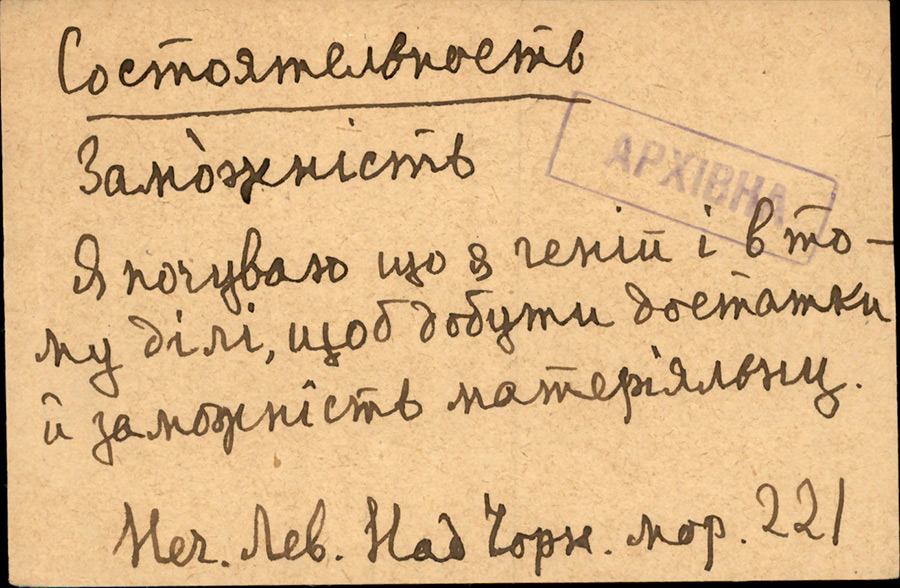 Состоятельность
Замо̀жність
АРХІВНА
Я почуваю що я геній і в то-
му ділі, щоб добути достатки
й заможність матеріяльну.
Неч. Лев. Над Чорн. мор. 221